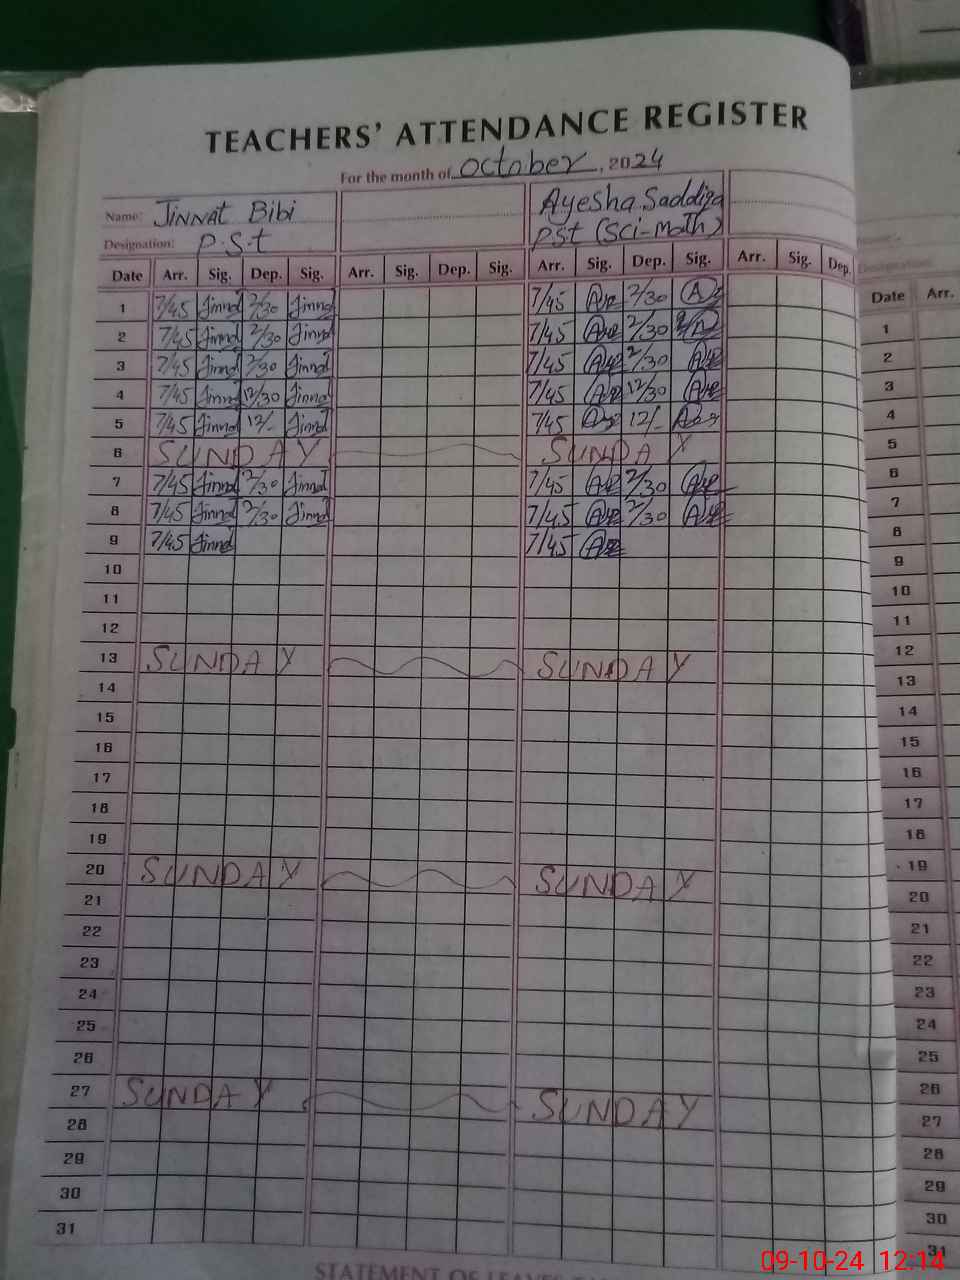 TEACHERS' ATTENDANCE REGISTER
For the month of October, 2024
Name: Jinnat Bibi Ayesha Saddiqa
Designation: P.S.t PSt (Sci-Math)
Date Arr. Sig. Dep. Sig. Arr. Sig. Dep. Sig. Arr. Sig. Dep. Sig. Arr. Sig. Dep. Date Arr.
1 7/45 Jinnat 2/30 Jinnat 7/45 2/30 1
2 7/45 Jinnat 2/30 Jinnat 7/45 2/30 2
3 7/45 Jinnat 2/30 Jinnat 7/45 2/30 3
4 7/45 Jinnat 12/30 Jinnat 7/45 12/30 4
5 7/45 Jinnat 12/- Jinnat 7/45 12/- 5
6 SUNDAY SUNDAY 6
7 7/45 Jinnat 2/30 Jinnat 7/45 2/30 7
8 7/45 Jinnat 2/30 Jinnat 7/45 2/30 8
9 7/45 Jinnat 7/45 9
10 10
11 11
12 12
13 SUNDAY SUNDAY 13
14 14
15 15
16 16
17 17
18 18
19 19
20 SUNDAY SUNDAY 20
21 21
22 22
23 23
24 24
25 25
26 26
27 SUNDAY SUNDAY 27
28 28
29 29
30 30
31 31
STATEMENT OF
09-10-24 12:14